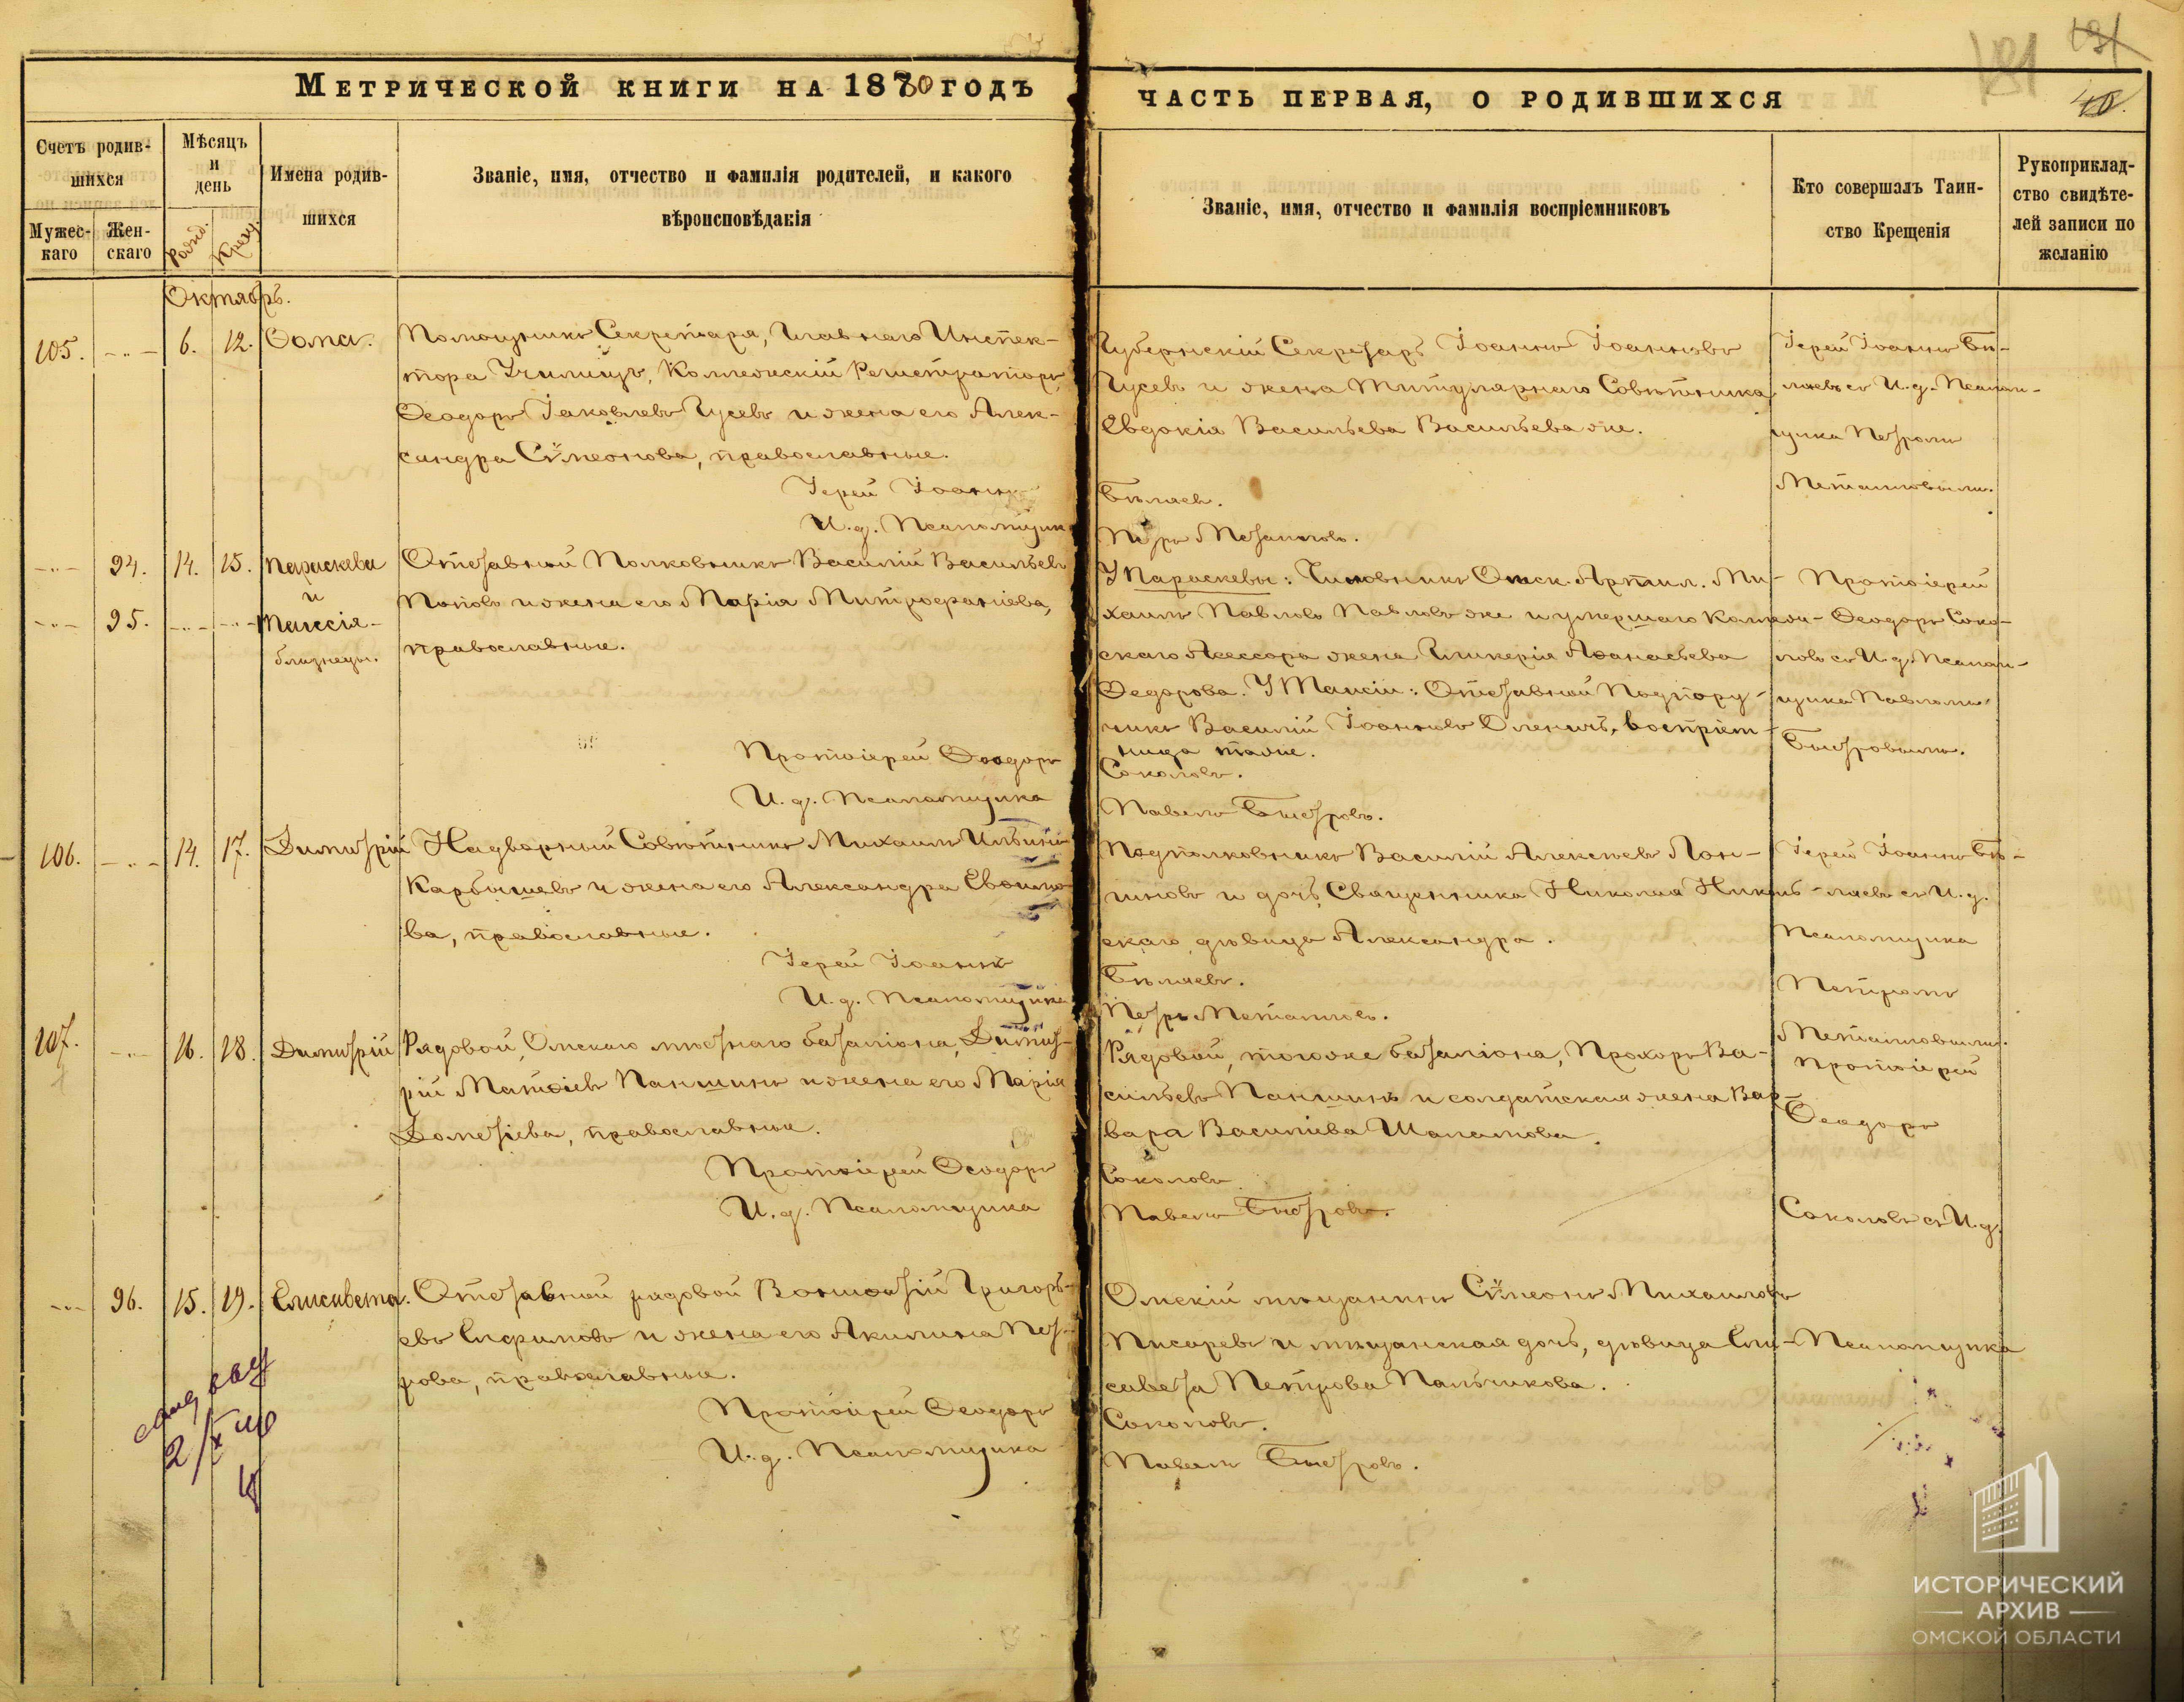 МЕТРИЧЕСКОЙ КНИГИ НА 1880 ГОДЪ
ЧАСТЬ ПЕРВАЯ, О РОДИВШИХСЯ
181
40.
Счетъ родив-
шихся
Мужес-
каго
Жен-
скаго
Мѣсяцъ
и
день
Рожд.
Крещ.
Имена родив-
шихся
Званіе, имя, отчество и фамилія родителей, и какого
вѣроисповѣданія
Званіе, имя, отчество и фамилія воспріемниковъ
Кто совершалъ Таин-
ство Крещенія
Рукоприклад-
ство свидѣте-
лей записи по
желанію
Октябрь.
105. 6. 12. Ѳома.
Помощникъ Секретаря, Главнаго Инспек-
тора Училищъ, Коллежскій Регистраторъ
Ѳеодоръ Іаковлевъ Гусевъ и жена его Алек-
сандра Сѵмеонова, православные.
Іерей Іоаннъ
И. д. Псаломщик
Губернскій Секретарь Іоаннъ Іоанновъ
Гусевъ и жена Титулярнаго Совѣтника
Евдокія Васильева Васильева же.
Бѣляевъ.
Петръ Металловъ.
Іерей Іоаннъ Бѣ-
ляевъ съ И. д. Псалом-
щика Петромъ
Металловымъ.
94. 14. 15. Параскева
и
95. Таисія
близнецы.
Отставной Полковникъ Василій Васильевъ
Поповъ и жена его Марія Митрофаніева,
православные.
Протоіерей Ѳеодоръ
И. д. Псаломщика
У Параскевы: Чиновникъ Омск. Артил. Ми-
хаилъ Павловъ Павловъ же и умершаго Коллеж-
скаго Ассессора жена Гликерія Аѳанасьева
Ѳедорова. У Таисіи: Отставной Подпору-
чикъ Василій Іоанновъ Оленичъ, воспріем-
ница таже.
Соколовъ.
Павелъ Быстровъ.
Протоіерей
Ѳеодоръ Соко-
ловъ съ И. д. Псалом-
щика Павломъ
Быстровымъ.
106. 14. 17. Димитрій
Надворный Совѣтникъ Михаилъ Ильинъ
Карбышевъ и жена его Александра
ва, православные.
Іерей Іоаннъ
И. д. Псаломщика
Подполковникъ Василій Алексѣевъ Лон-
гиновъ и дочь Священника Николая Николь-
скаго, дѣвица Александра.
Бѣляевъ.
Петръ Металловъ.
Іерей Іоаннъ Бѣ-
ляевъ съ И. д.
Псаломщика
Петромъ
Металловымъ.
107. 16. 18. Димитрій
Рядовой, Омскаго мѣстнаго баталіона, Димит-
рій Матѳіевъ Паншинъ и жена его Марія
Дометіева, православные.
Протоіерей Ѳеодоръ
И. д. Псаломщика
Рядовой, того же баталіона, Прохоръ Ва-
сильевъ Паншинъ и солдатская жена Вар-
вара Василіева Шаламова.
Соколовъ
Павелъ Быстровъ.
Протоіерей
Ѳеодоръ
Соколовъ съ И. д.
96. 15. 19. Елисавета.
Отставной рядовой Вонифатій Григорь-
евъ Епифановъ и жена его Акилина Пет-
рова, православные.
Протоіерей Ѳеодоръ
И. д. Псаломщика
Омскій мѣщанинъ Сѵмеонъ Михаиловъ
Писаревъ и мѣщанская дочь, дѣвица Ели-
савета Петрова Пальчикова.
Соколовъ.
Павелъ Быстровъ.
Псаломщика
ИСТОРИЧЕСКИЙ
АРХИВ
ОМСКОЙ ОБЛАСТИ